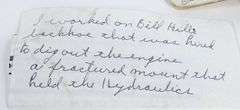 I worked on Bill Hill's
backhoe that was hired
to dig out the engine
a fractured mount that
held the Hydraulics